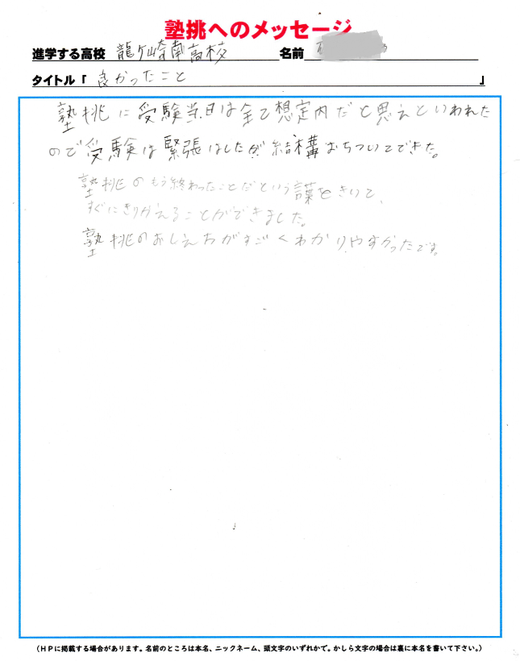 塾挑へのメッセージ
進学する高校 龍ヶ崎南高校 名前
タイトル「 良かったこと 」
塾挑に受験当日は全て想定内だと思えといわれた
ので受験は緊張はしたが、結構おちついてできた。
塾挑のもう終わったことだという言葉をきいて、
すぐにきりかえることができました。
塾挑のおしえ方がすごくわかりやすかったです。
（ＨＰに掲載する場合があります。名前のところは本名、ニックネーム、頭文字のいずれかで。かしら文字の場合は裏に本名を書いて下さい。）